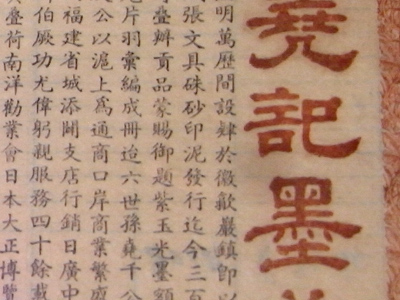 堯記墨
明萬歷間設肆於徽歙巖鎮卽以
張文具硃砂印泥發行迄今三百
疊辦貢品蒙賜御題紫玉光墨額
片羽彙編成冊迨六世孫堯千公
公以滬上爲通商口岸商業繁盛
福建省城添闢支店行銷日廣中
伯厥功尤偉躬親服務四十餘載
疊荷南洋勸業會日本大正博覽